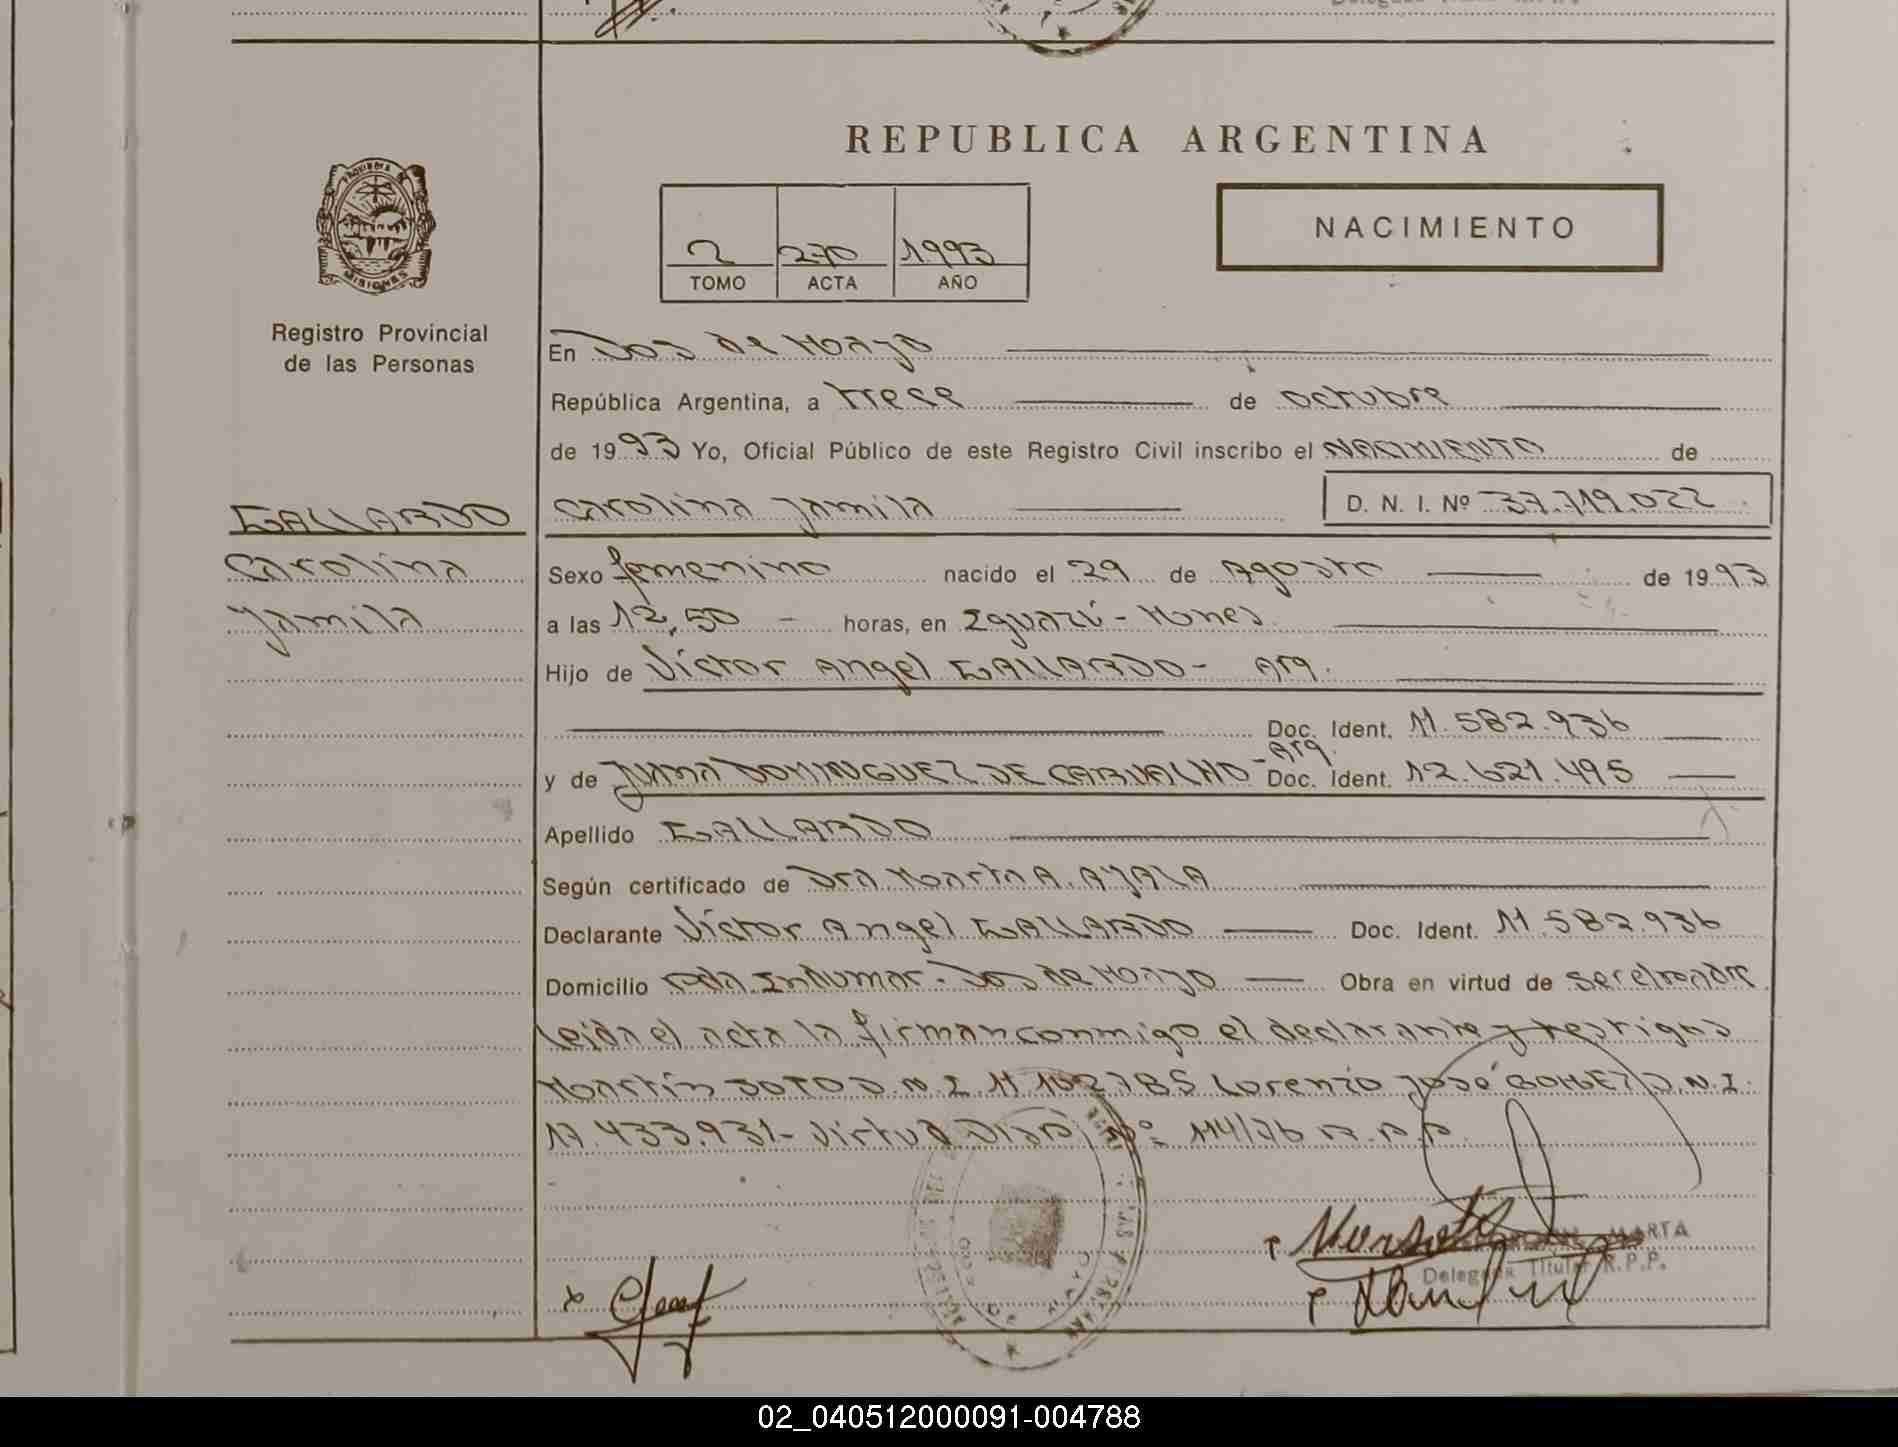 REPUBLICA ARGENTINA
NACIMIENTO
2 270 1993
TOMO ACTA AÑO
PROVINCIA DE
MISIONES
Registro Provincial
de las Personas
En Dos de Mayo
República Argentina, a trece de octubre
de 1993 Yo, Oficial Público de este Registro Civil inscribo el NACIMIENTO de
GALLARDO
Carolina Yamila D. N. I. Nº 37.719.022
Carolina
Sexo femenino nacido el 29 de Agosto de 1993
Yamila
a las 12,50 - horas, en Iguazú - Mones
Hijo de Víctor Angel GALLARDO - Arg.
Doc. Ident. 11.582.936
y de Juana DOMINGUEZ DE CARVALHO - Arg. Doc. Ident. 12.621.495
Apellido GALLARDO
Según certificado de Dra Marta A. AYALA
Declarante Víctor Angel GALLARDO Doc. Ident. 11.582.936
Domicilio Indumar - Dos de Mayo Obra en virtud de ser el padre
Leida el acta la firman conmigo el declarante y testigos
Martín SOTO D.N.I 11.102.785 Lorenzo José GOMEZ D.N.I.
17.433.931 - Virtud Disp. Nº 114/76 R.P.P.
MARTA
Delegada Titular R.P.P.
02_040512000091-004788